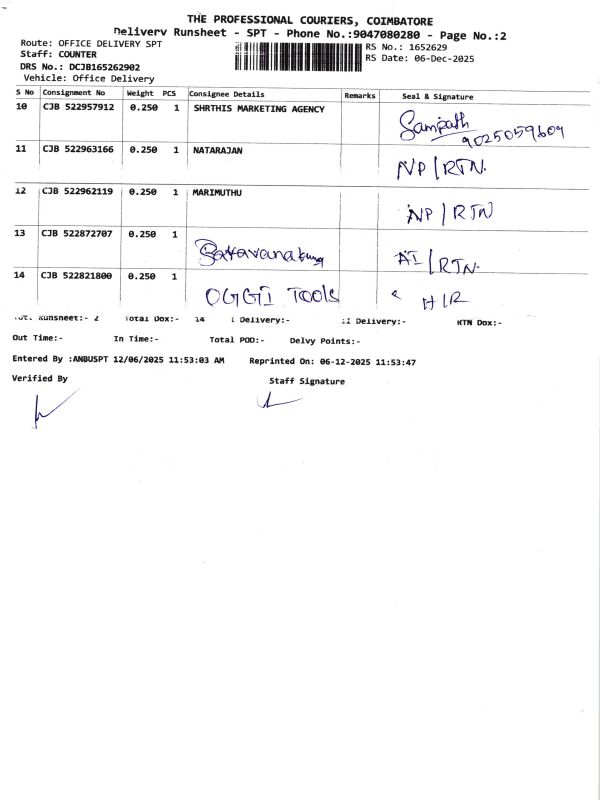 THE PROFESSIONAL COURIERS, COIMBATORE
Delivery Runsheet - SPT - Phone No.:9047080280 - Page No.:2
Route: OFFICE DELIVERY SPT
Staff: COUNTER
DRS No.: DCJB165262902
Vehicle: Office Delivery
RS No.: 1652629
RS Date: 06-Dec-2025
S No Consignment No Weight PCS Consignee Details Remarks Seal & Signature
10 CJB 522957912 0.250 1 SHRTHIS MARKETING AGENCY Sampath
9025059609
11 CJB 522963166 0.250 1 NATARAJAN NP/RTN.
12 CJB 522962119 0.250 1 MARIMUTHU NP/RTN
13 CJB 522872707 0.250 1 AI/RTN.
14 CJB 522821800 0.250 1 OGGI TOOLS
Tot. Runsheet:- 2 Total Dox:- 14 Delivery:- Delivery:- RTN Dox:-
Out Time:- In Time:- Total POD:- Delvy Points:-
Entered By :ANBUSPT 12/06/2025 11:53:03 AM Reprinted On: 06-12-2025 11:53:47
Verified By Staff Signature